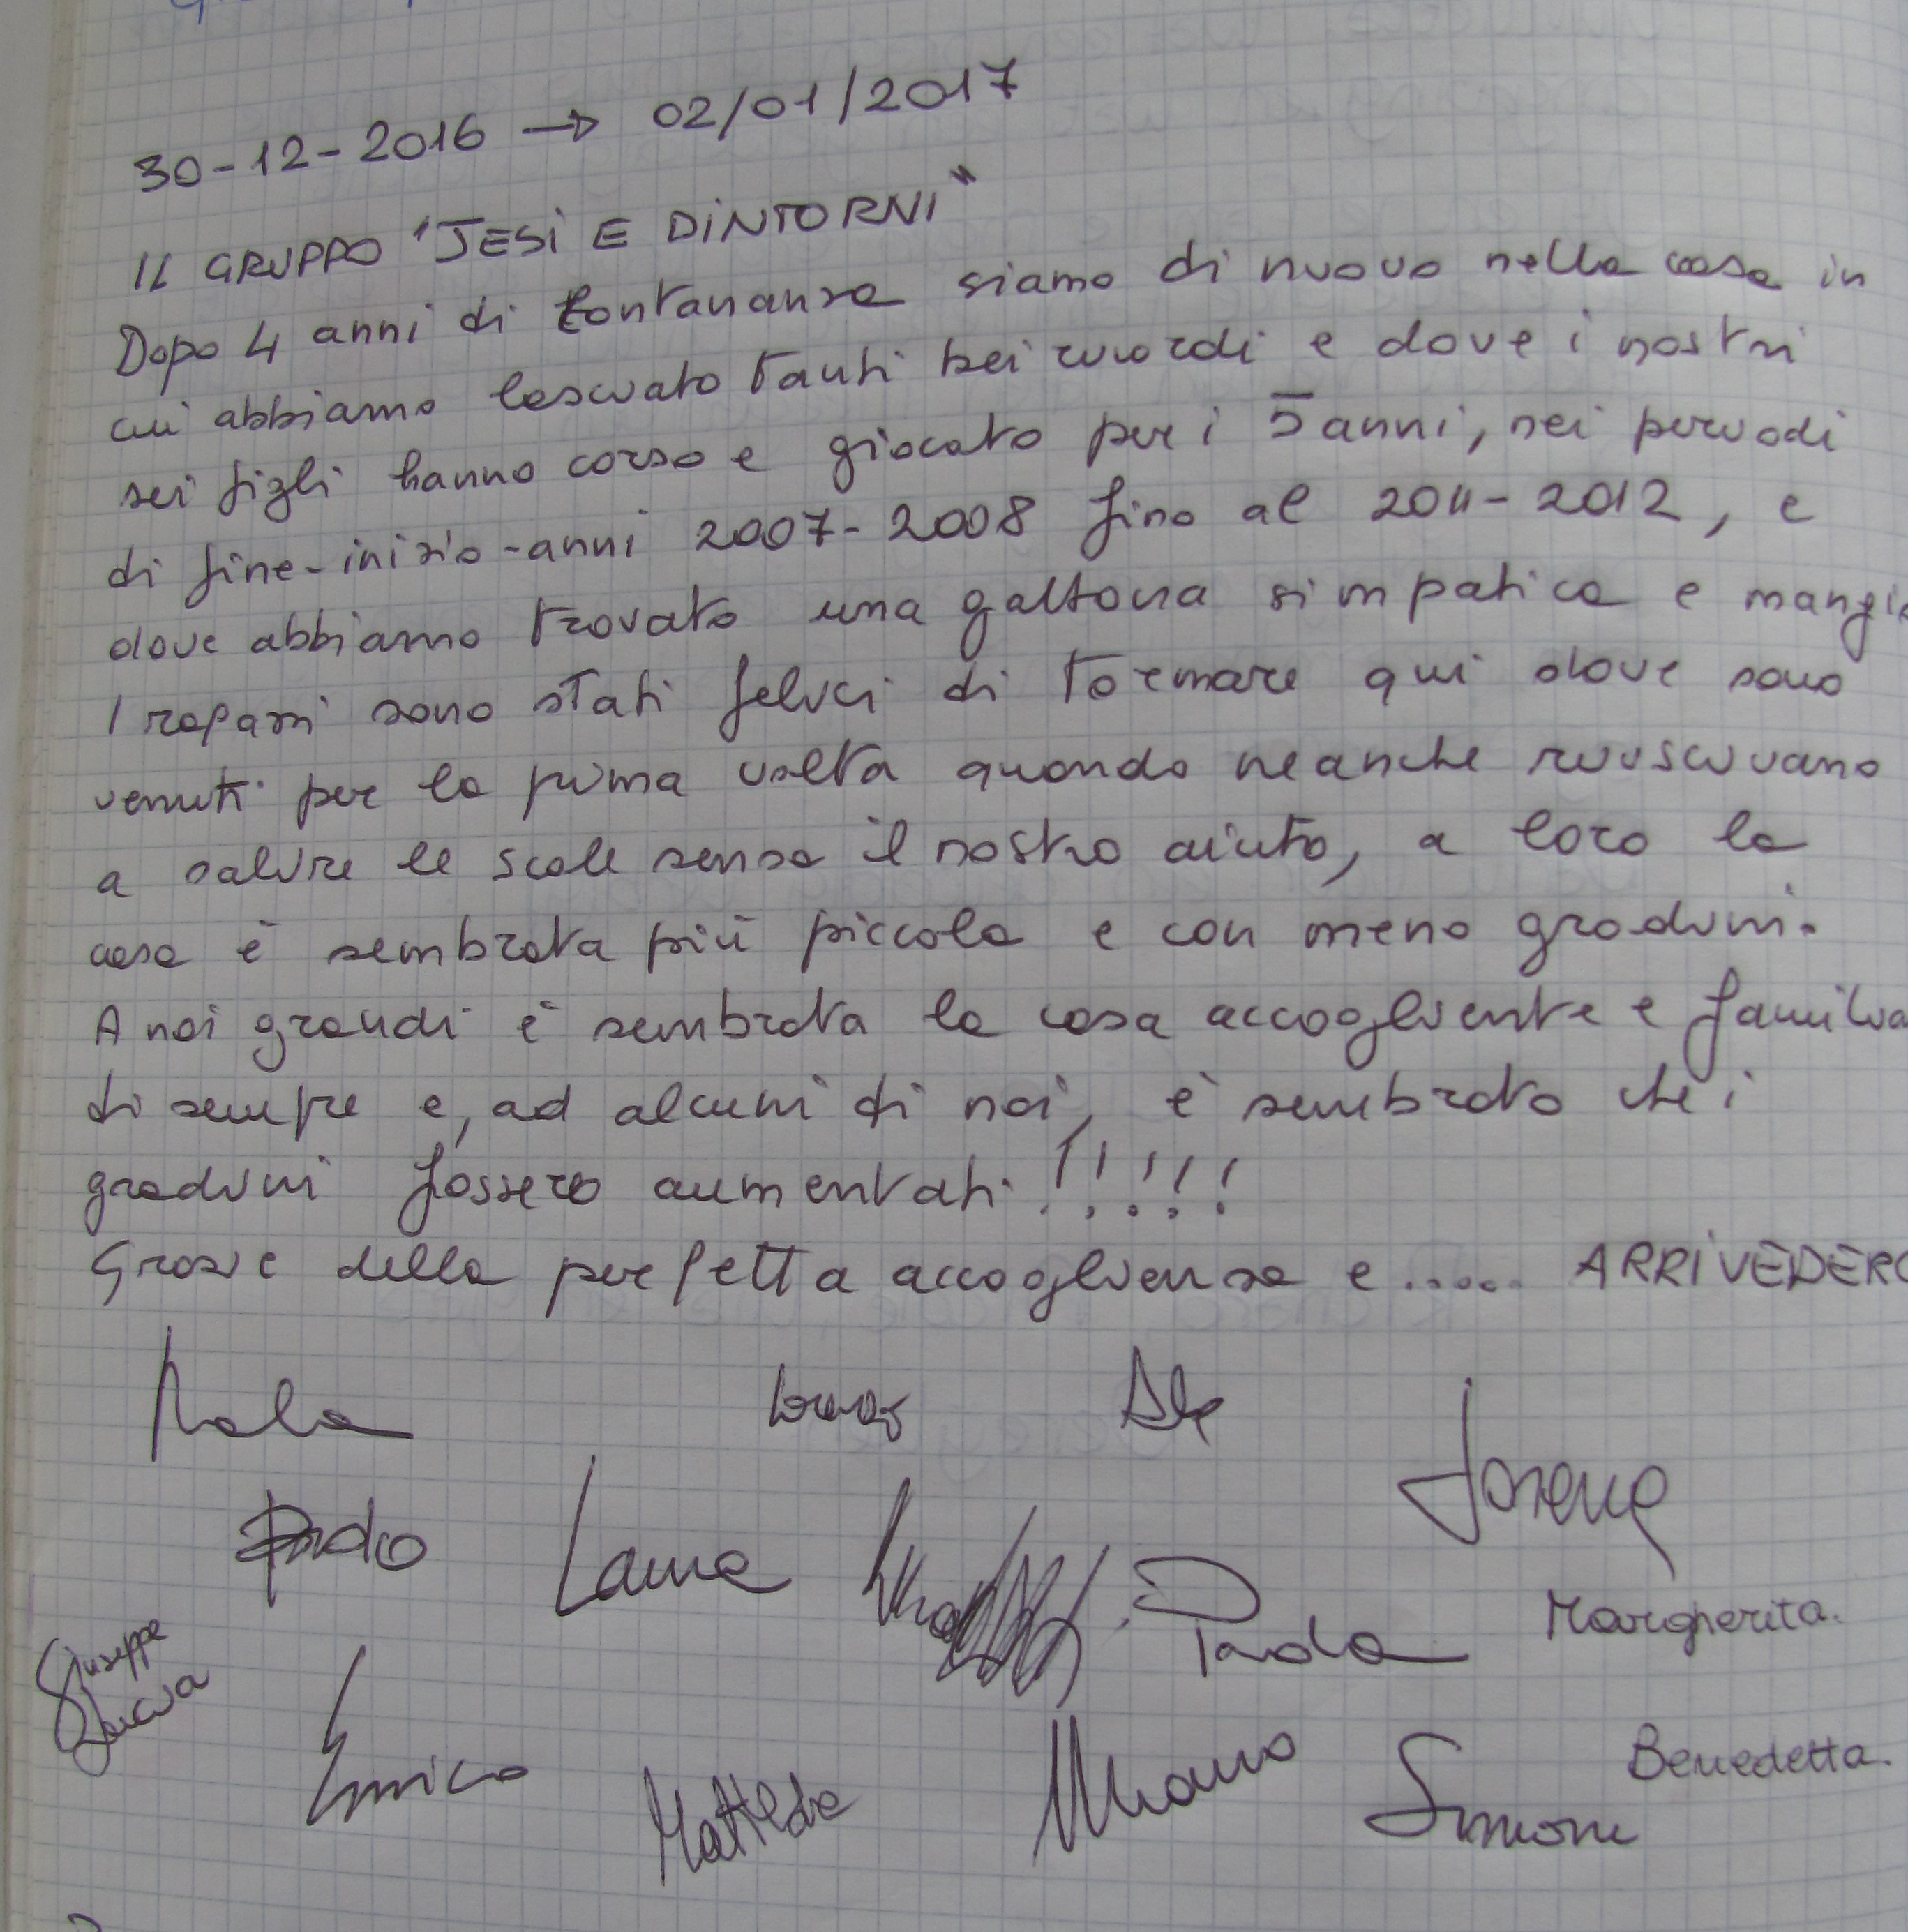 30-12-2016 → 02/01/2017
IL GRUPPO "JESI E DINTORNI"
Dopo 4 anni di lontananza siamo di nuovo nella casa in
cui abbiamo lasciato tanti bei ricordi e dove i nostri
sei figli hanno corso e giocato per i 5 anni, nei periodi
di fine-inizio-anni 2007-2008 fino al 2011-2012, e
dove abbiamo trovato una gattona simpatica e mangio
I ragazzi sono stati felici di tornare qui dove sono
venuti per la prima volta quando neanche riuscivano
a salire le scale senza il nostro aiuto, a loro la
casa è sembrata più piccola e con meno gradini.
A noi grandi è sembrata la casa accogliente e familia
di sempre e, ad alcuni di noi, è sembrato che i
gradini fossero aumentati!!!!!
Grazie della perfetta accoglienza e..... ARRIVEDERC
Ale
Paolo Laura Paola Margherita.
Giuseppe
Enrico Matilde Simone Benedetta.